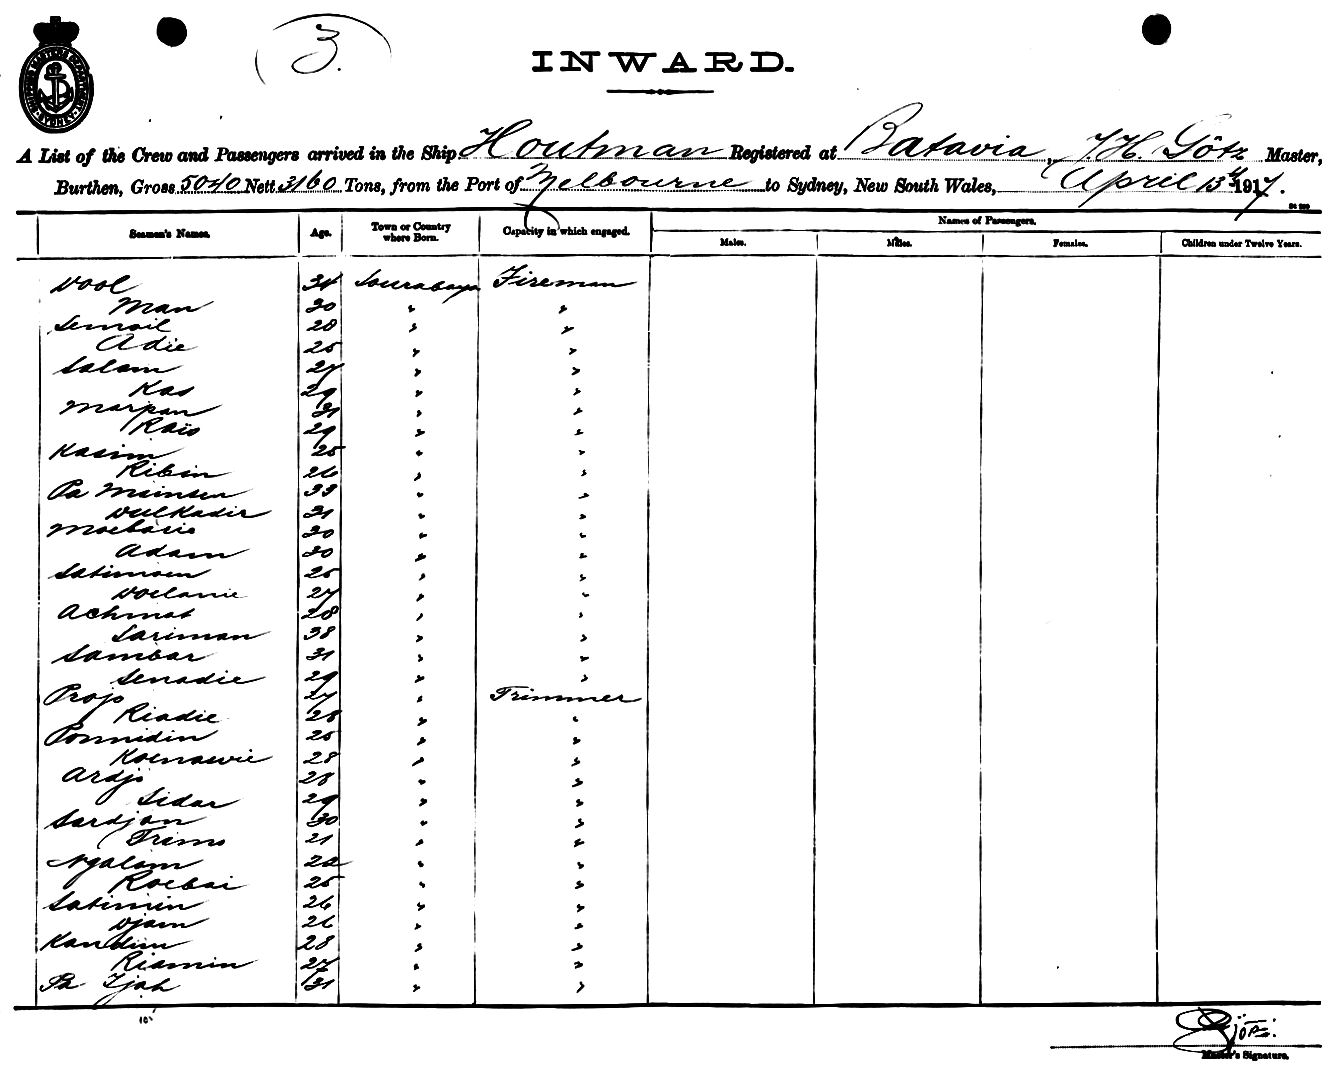 3.
INWARD.
A List of the Crew and Passengers arrived in the Ship Houtman Registered at Batavia, J.H. Götz Master,
Burthen, Gross 5040 Nett 3160 Tons, from the Port of Melbourne to Sydney, New South Wales, April 13th 1917.
Seamen's Names. Age. Town or Country where Born. Capacity in which engaged. Names of Passengers.
Males. Males. Females. Children under Twelve Years.
Dool 34 Sourabaya Fireman
Man 30 " "
Semoil 28 " "
Adie 25 " "
Salam 27 " "
Kas 29 " "
Marpan 31 " "
Rais 29 " "
Kasim 25 " "
Ribin 26 " "
Pa Mainsen 33 " "
Dulkadir 31 " "
Moebarie 30 " "
Adam 30 " "
Satimoen 25 " "
Doelanie 27 " "
Achmat 28 " "
Sariman 38 " "
Sambar 31 " "
Senadie 29 " "
Projo 27 " Trimmer
Riadie 28 " "
Ponnidin 25 " "
Koenawie 28 " "
Ardjo 28 " "
Sidar 29 " "
Sardjan 30 " "
Trimo 21 " "
Ngalam 22 " "
Roebai 25 " "
Satimin 26 " "
Djam 26 " "
Kandim 28 " "
Riamin 27 " "
Pa Tjah 31 " "
Master's Signature.